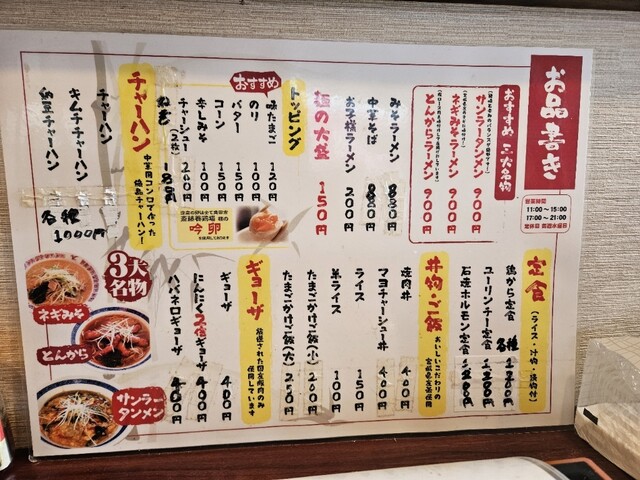 お品書き
営業時間
11:00～15:00
17:00～21:00
おすすめ 三大名物
サンラータンメン 900円
ネギみそラーメン 900円
とんからラーメン 900円
みそラーメン 880円
中華そば 880円
お子様ラーメン 200円
麺の大盛 150円
おすすめ
トッピング
味たまご 120円
のり 100円
バター 100円
コーン 100円
辛しみそ 150円
チャーシュー(2枚) 200円
ねぎ 180円
吟卵
を使用しております
チャーハン
中華用コンロで作った
極品チャーハン!
チャーハン
キムチチャーハン
納豆チャーハン
各種
1000円
定食
(ライス・汁物・漬物付)
鶏から定食
ユーリンチー定食
石焼ホルモン定食
各種
丼物・ご飯
おいしいこだわりの
宮城県産米使用
焼肉丼 400円
マヨチャーシュー丼 400円
ライス 150円
半ライス 100円
たまごかけご飯(小) 200円
たまごかけご飯(大) 250円
ギョーザ
厳選された国産豚肉のみ
使用しています
ギョーザ 400円
にんにく2倍ギョーザ 400円
ハバネロギョーザ 400円
3大名物
ネギみそ
とんから
サンラー
タンメン